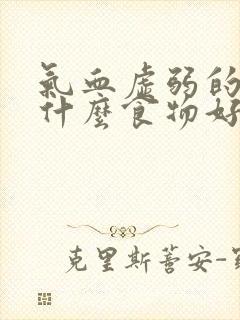 氣血虛弱的
什麼食物好
克里斯蒂安-